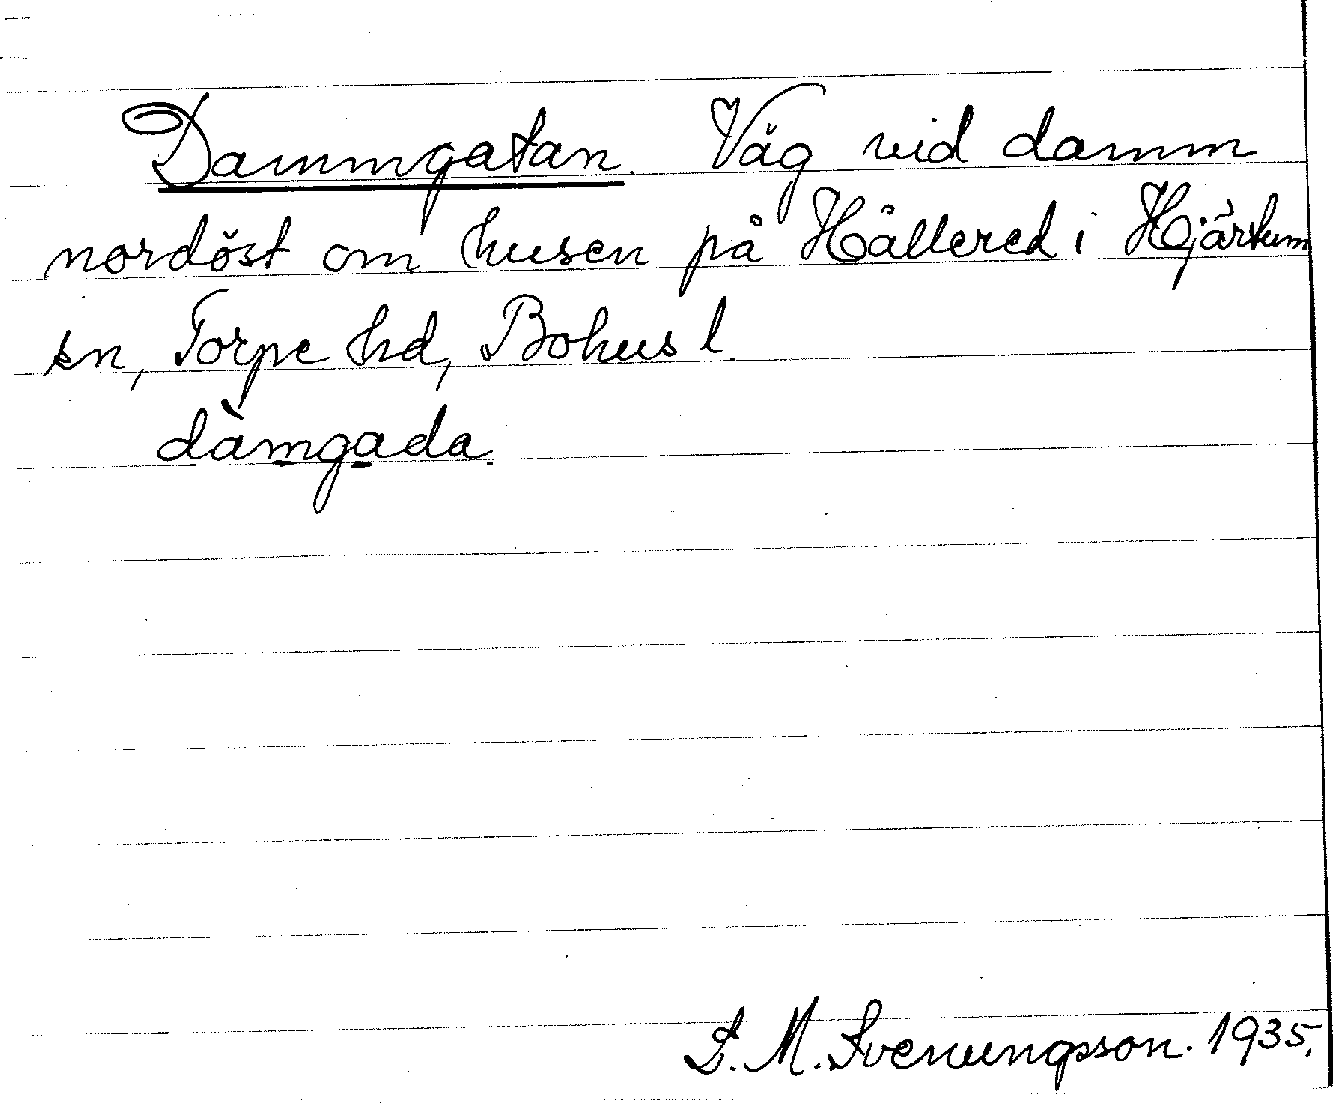 Dammgatan. Väg vid damm
nordöst om husen på Hällered i Hjärtum
sn, Torpe hd, Bohus l.
dàmgada.
S. M. Svenungsson. 1935.